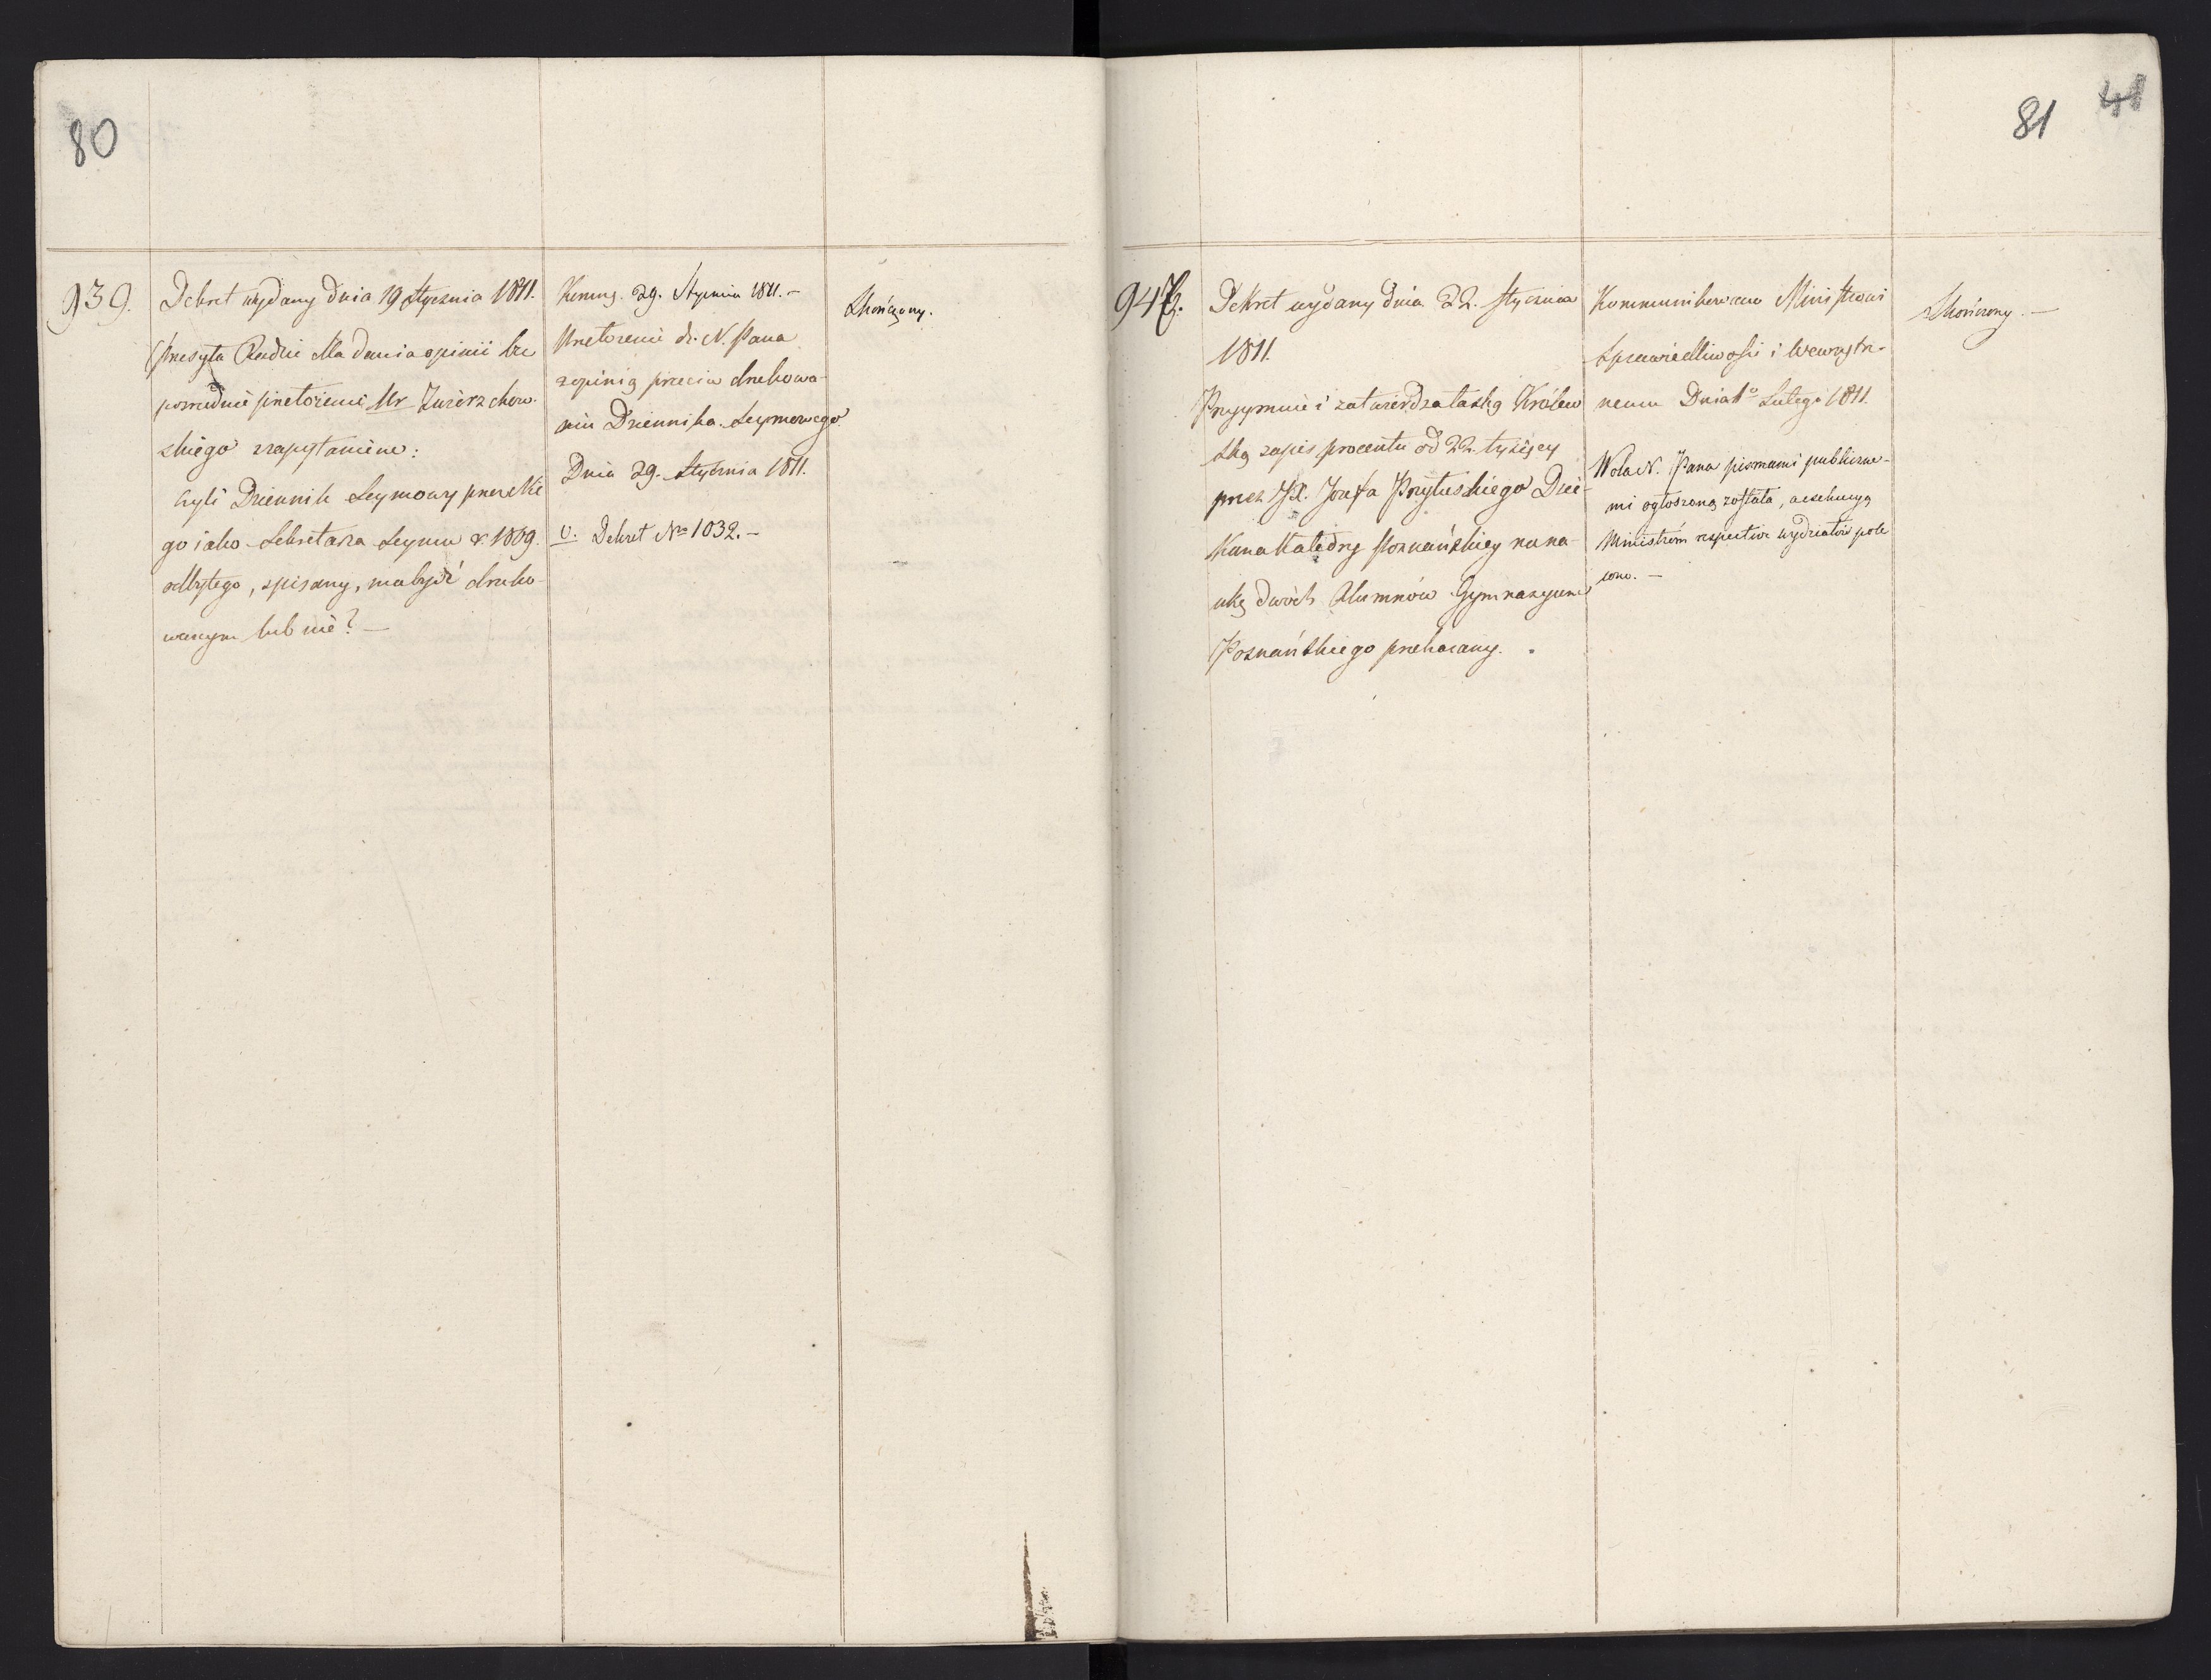 80
939.
Dekret wydany dnia 19 stycznia 1811.
przesyła Radzie dla dania opinii bez
pośrednie przełożenie Ur Zwierzchow-
skiego z zapytaniem:
czyli Dziennik Seymowy przez Nie
go iako Sekretarza Seymu r. 1809.
odbytego, spisany, ma bydź druko-
wanym lub nie? —
29. Stycznia 1811. —
Przełożenie do N. Pana
z opinią przeciw drukowa-
niu Dziennika Seymowego
Dnia 29. Stycznia 1811.
v. Dekret No 1032. —
Skończony.
81
41
947.
Dekret wydany dnia 22. stycznia
1811.
Przyymuie i zatwierdza łaską Królew
ską zapis procentu od 22. tysięcy
przez JX. Jozefa Przyłuskiego Dzie-
kana Katedry poznańskiey na na-
ukę dwóch Alumnów Gymnazyum
Poznańskiego przekazany.
Kommunikowano Ministrowi
Sprawiedliwości i Wewnętrz-
nemu Dnia 1o Lutego 1811.
Wola N. Pana pismami publiczne-
mi ogłoszoną została, a exekucyą
Ministróm respective wydziałów pole
cono. —
Skończony. —